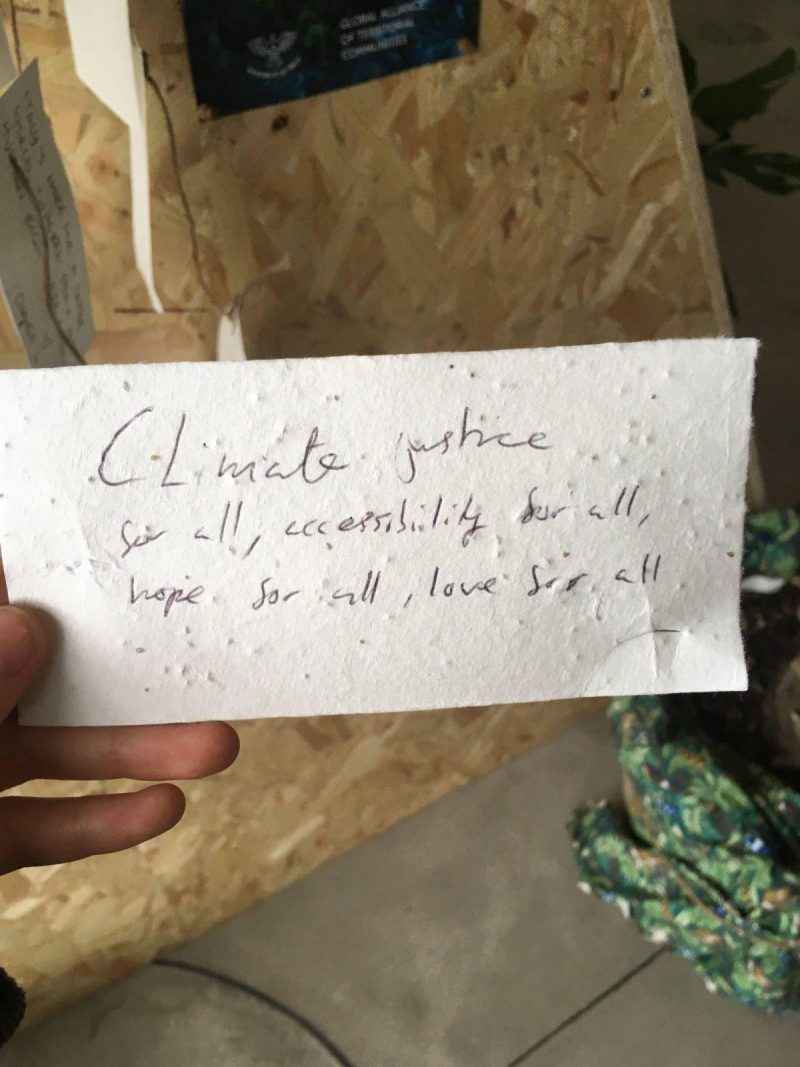 GLOBAL ALLIANCE
OF TERRITORIAL
COMMUNITIES
CLimate justice
for all, accessibility for all,
hope for all, love for all